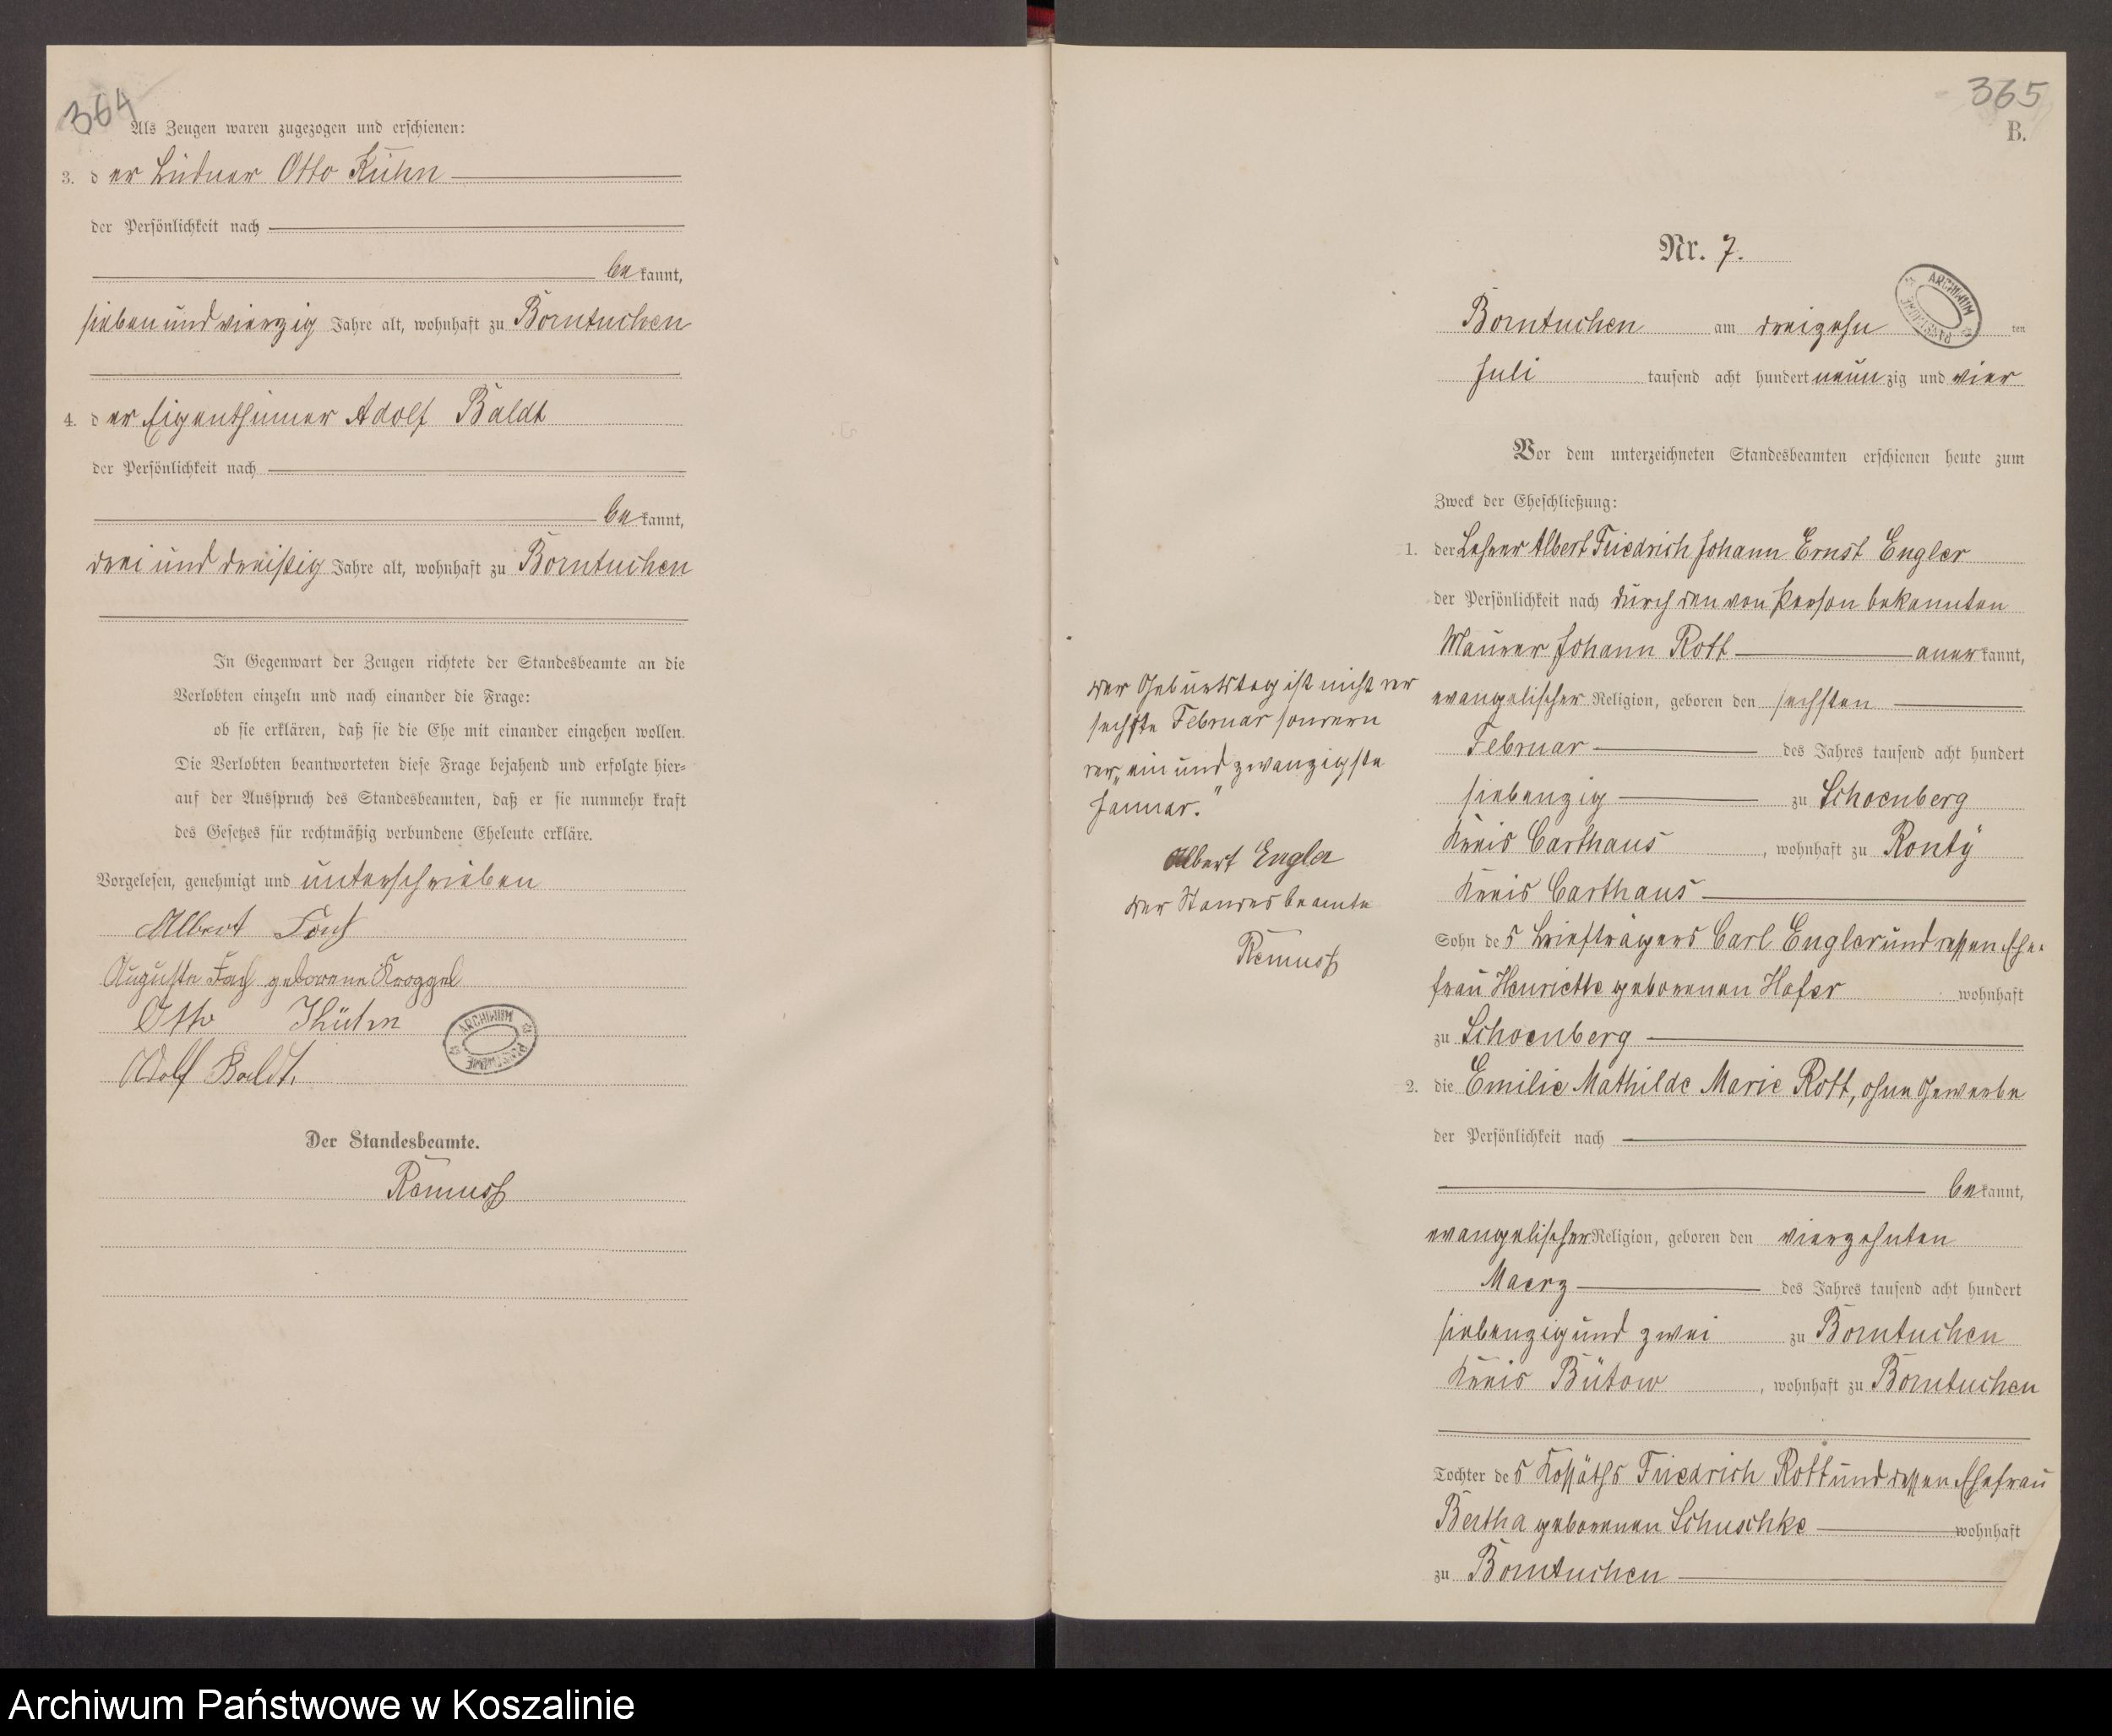 364
Als Zeugen waren zugezogen und erschienen:
3. der Büdner Otto Kühn
der Persönlichkeit nach
bekannt,
sieben und vierzig Jahre alt, wohnhaft zu Borntuchen
4. der Eigenthümer Adolf Baldt
der Persönlichkeit nach
bekannt,
drei und dreißig Jahre alt, wohnhaft zu Borntuchen
In Gegenwart der Zeugen richtete der Standesbeamte an die
Verlobten einzeln und nach einander die Frage:
ob sie erklären, daß sie die Ehe mit einander eingehen wollen.
Die Verlobten beantworteten diese Frage bejahend und erfolgte hier-
auf der Ausspruch des Standesbeamten, daß er sie nunmehr kraft
des Gesetzes für rechtmäßig verbundene Eheleute erkläre.
Vorgelesen, genehmigt und unterschrieben
Albert
Auguste geborene Kroggel
Otto Kühn
Adolf Baldt.
ARCHIWUM PAŃSTWOWE
Der Standesbeamte.
Remuss
365
B.
Nr. 7.
ARCHIWUM PAŃSTWOWE
Borntuchen am dreizehnten
Juli tausend acht hundert neunzig und vier
Vor dem unterzeichneten Standesbeamten erschienen heute zum
Zweck der Eheschließung:
1. der Lehrer Albert Friedrich Johann Ernst Engler
der Persönlichkeit nach durch den von Person bekannten
Maurer Johann Rott anerkannt,
evangelischer Religion, geboren den sechsten
Februar des Jahres tausend acht hundert
siebenzig zu Schoenberg
Kreis Carthaus, wohnhaft zu Ronty
Kreis Carthaus
Sohn des Briefträgers Carl Engler und dessen Ehe-
frau Henriette geborenen Hofer wohnhaft
zu Schoenberg
2. die Emilie Mathilde Marie Rott, ohne Gewerbe
der Persönlichkeit nach
bekannt,
evangelischer Religion, geboren den vierzehnten
Maerz des Jahres tausend acht hundert
siebenzig und zwei zu Borntuchen
Kreis Bütow, wohnhaft zu Borntuchen
Tochter des Kossäths Friedrich Rott und dessen Ehefrau
Bertha geborenen Schuschke wohnhaft
zu Borntuchen
Der Geburtstag ist nicht der
sechste Februar sondern
der „ein und zwanzigste
Januar."
Albert Engler
Der Standesbeamte
Remuss
Archiwum Państwowe w Koszalinie